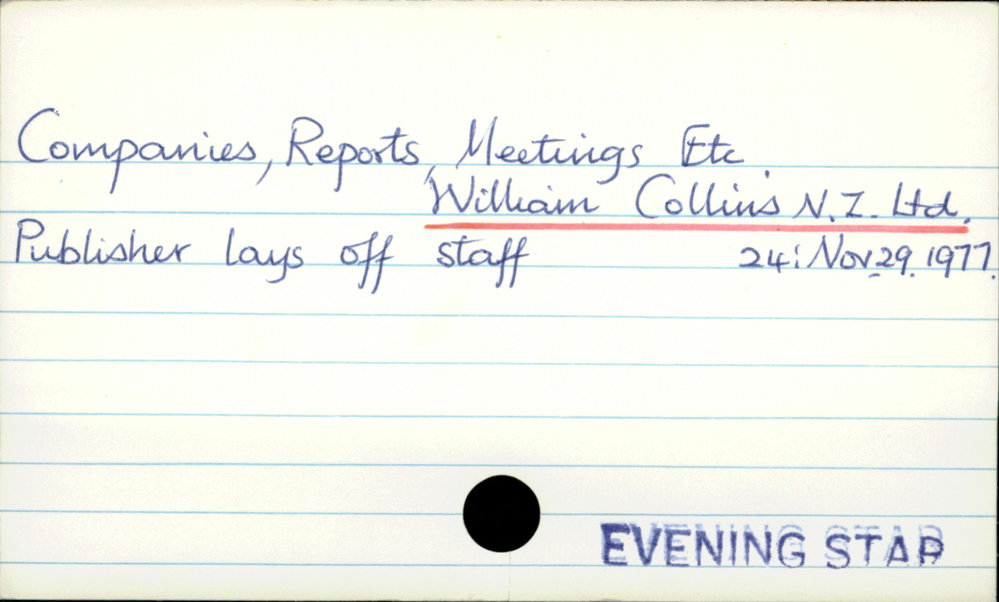 Companies, Reports, Meetings Etc.
William Collins N.Z. Ltd.
Publisher lays off staff 24: Nov. 29. 1977.
EVENING STAR